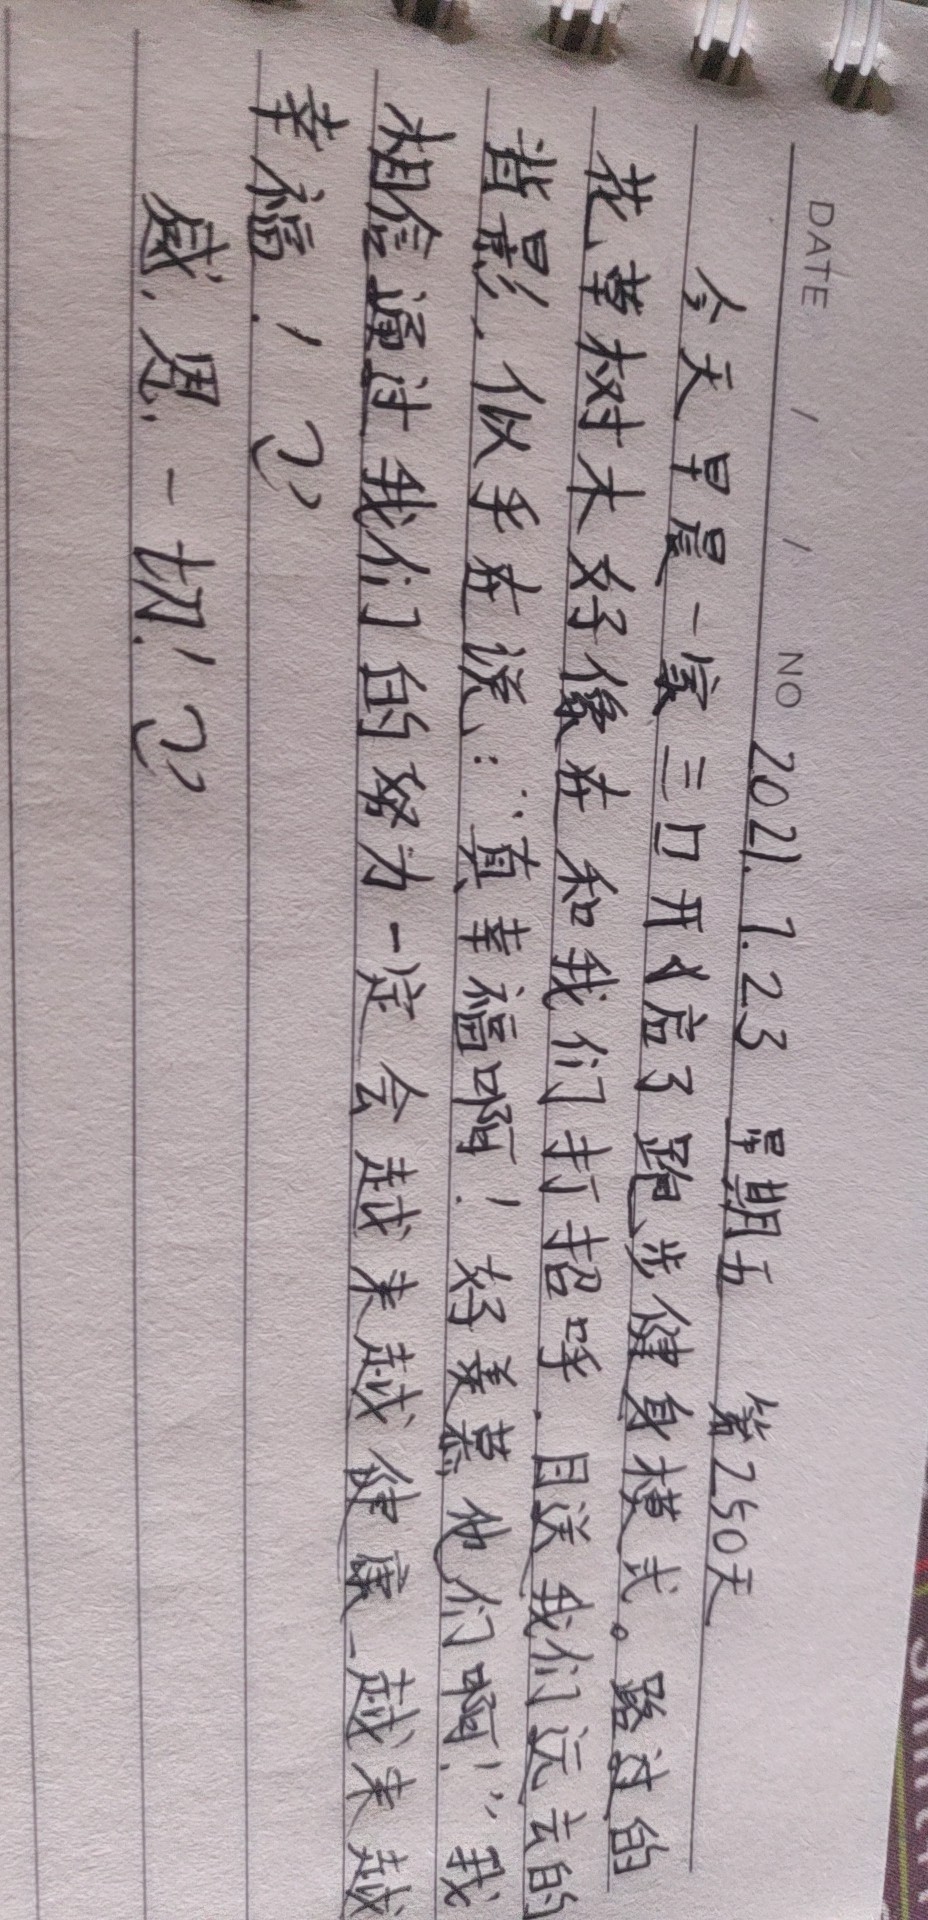 DATE / / NO 2021.7.23 星期五 第250天
今天早晨一家三口开启了跑步健身模式。路过的
花、草树木好像在和我们打招呼.目送我们远去的
背影.似乎在说:“真幸福啊!好羡慕他们啊!”我
相信通过我们的努力一定会越来越健康、越来越
幸福!
感恩一切!